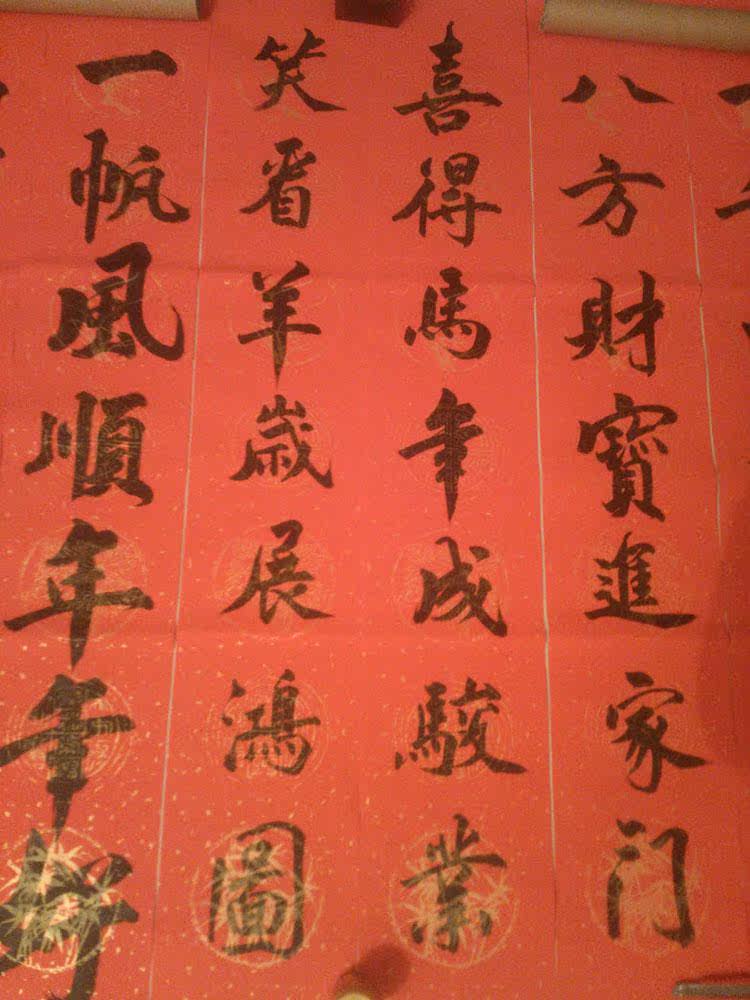 八方財寶進家门
喜得馬年成駿業
笑看羊歲展鴻圖
一帆風順年年好